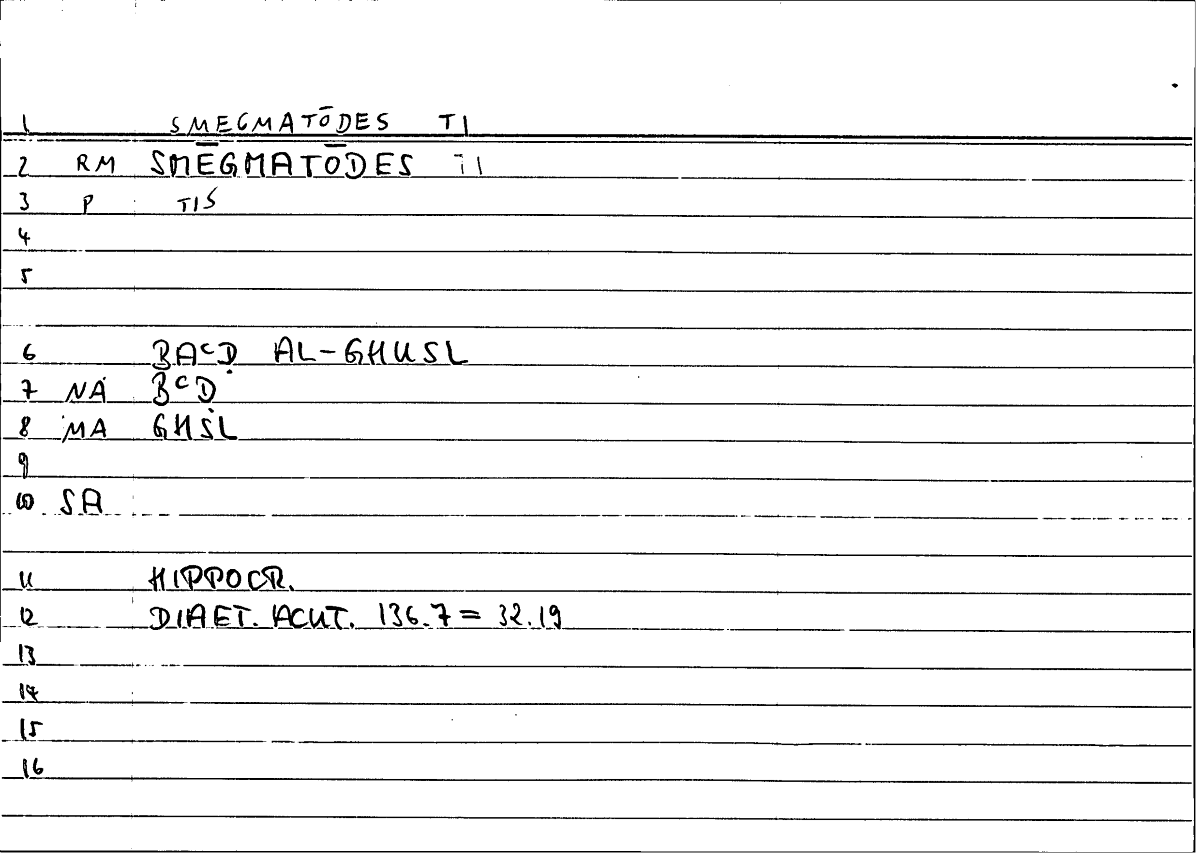 1 SMEGMATŌDES TI
2 RM SMĒGMATŌDES TI
3 P TIS
4
5
6 BAᶜD AL-GHUSL
7 NA BᶜD
8 MA GHSL
9
10 SA
11 HIPPOCR.
12 DIAET. ACUT. 136.7 = 32.19
13
14
15
16